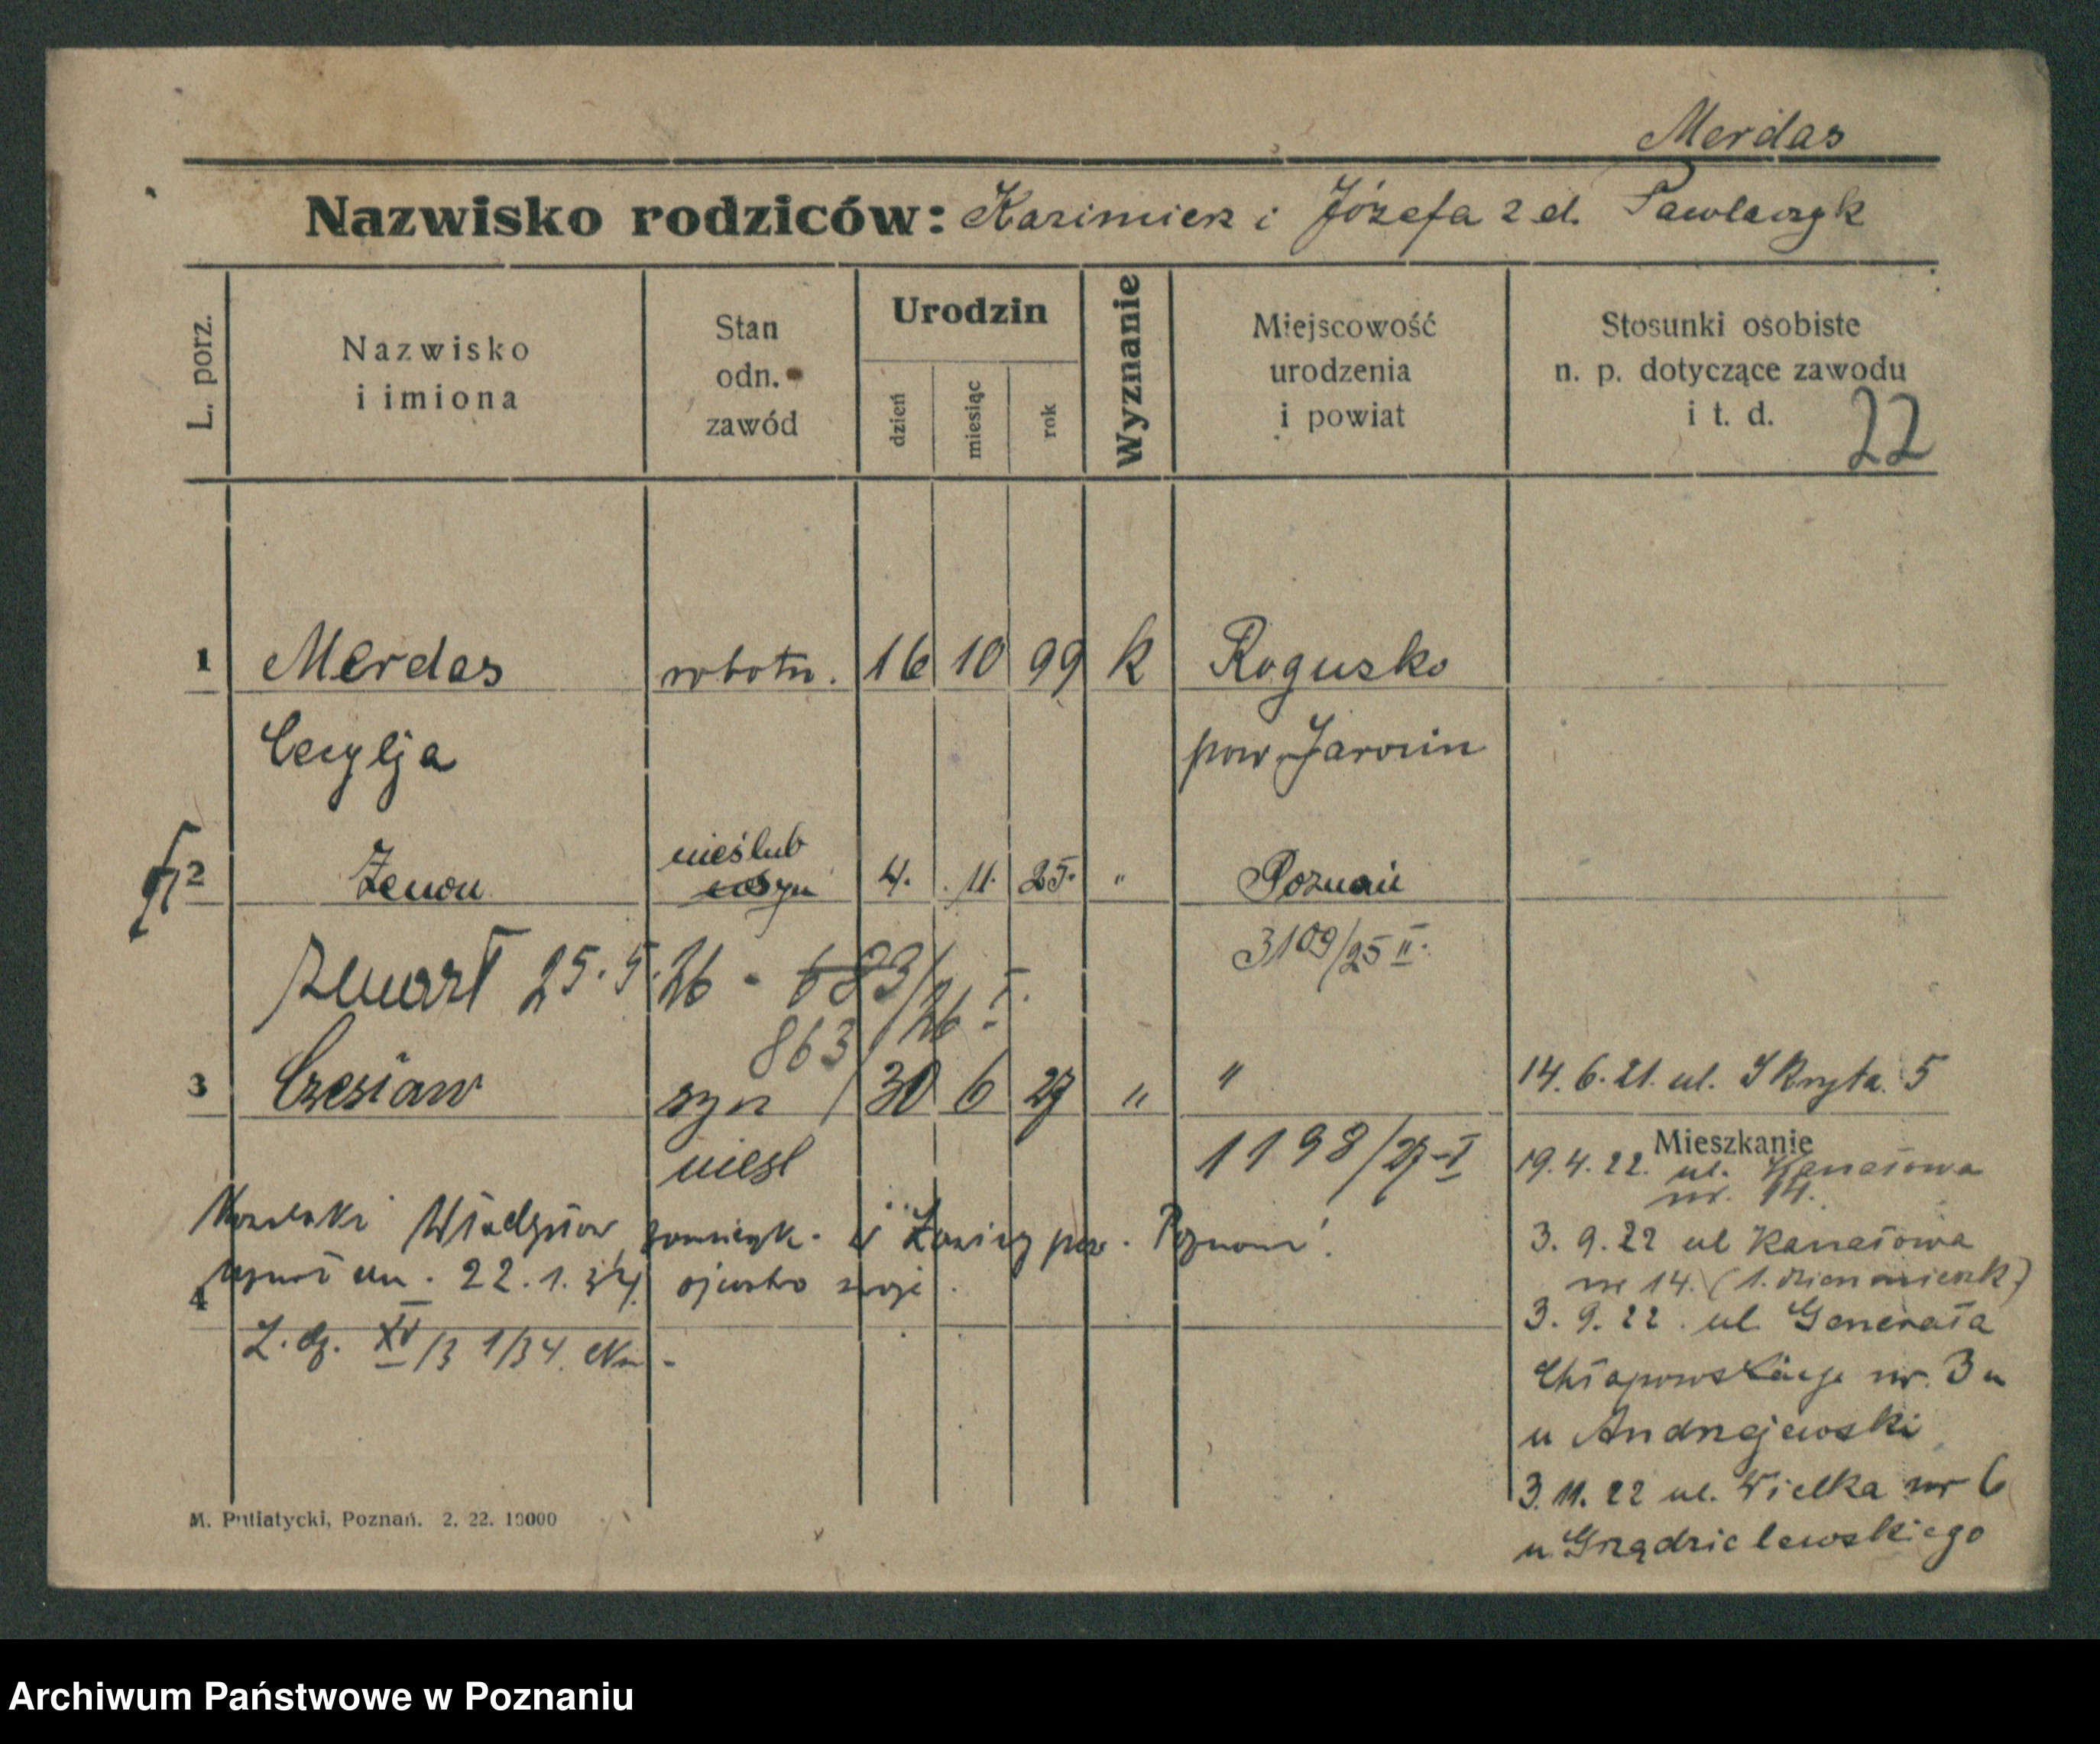 Merdas
Nazwisko rodziców: Kazimierz i Józefa z d. Pawlaczyk
L. porz.
Nazwisko
i imiona
Stan
odn.
zawód
Urodzin
dzień
miesiąc
rok
Wyznanie
Miejscowość
urodzenia
i powiat
Stosunki osobiste
n. p. dotyczące zawodu
i t. d.
22
1 Merdas robotn. 16 10 99 k Rogusko
Cecylja pow. Jarocin
nieślub
2 Zenon syn 4. 11. 25. " Poznań
3109/25 II.
zmarł 25.5.26 - 683/26 I.
863
3 Czesław syn 30 6 27 " "
niesl 1198/27-I
Władysław zamieszk. w pow. Poznań.
uznał dn. 22.1.34 ojcostwo swoje.
4
L. dz. XV/3 1/34.
14.6.21. ul. Skryta 5
Mieszkanie
19.4.22. ul. Kanałowa
nr. 14.
3.9.22 ul Kanałowa
nr 14. (1. dzien mieszk)
3.9.22. ul Generała
Chłapowskiego nr. 3
u Andrzejewski
3.11.22 ul. Wielka nr 6
u Grządzielewskiego
M. Putiatycki, Poznań. 2. 22. 10000
Archiwum Państwowe w Poznaniu